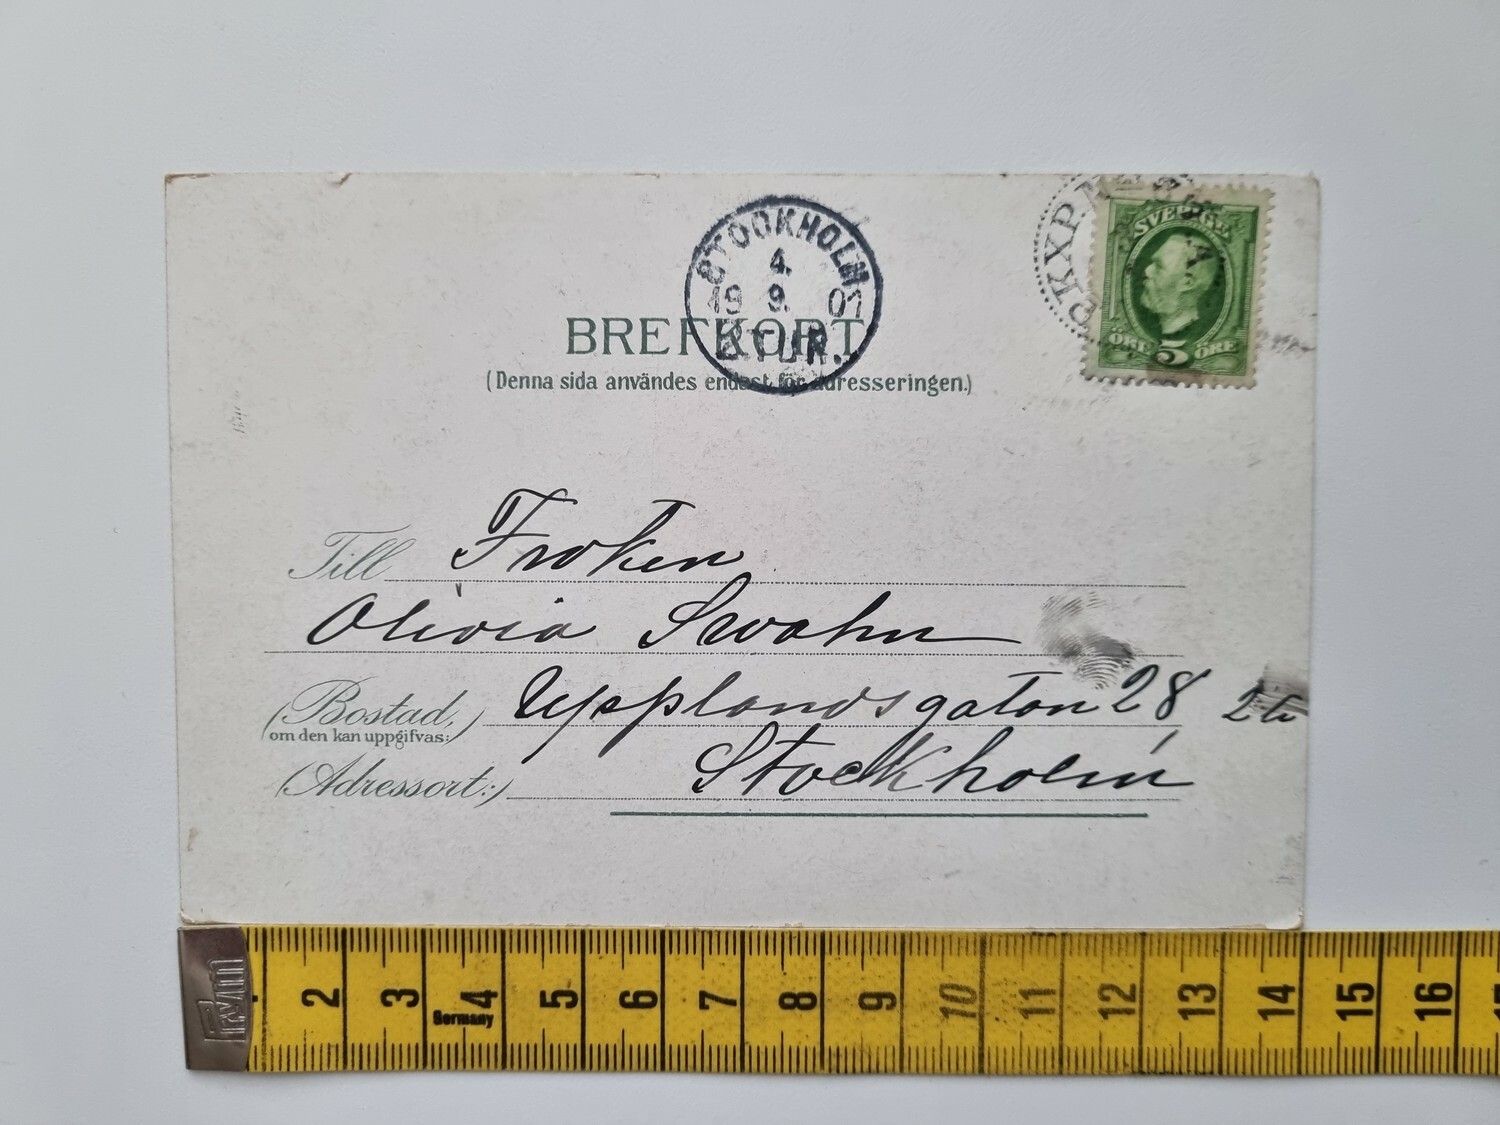 STOCKHOLM
4.
19 9. 01
2 TUR.
PKXP. N
SVERIGE
ÖRE 5 ÖRE
BREFKORT
(Denna sida användes endast för adresseringen.)
Till Fröken
Olivia Swahn
(Bostad, Upplandsgatan 28 2 tr
om den kan uppgifvas:)
(Adressort:) Stockholm
2 3 4 5 6 7 8 9 10 11 12 13 14 15 16
Germany